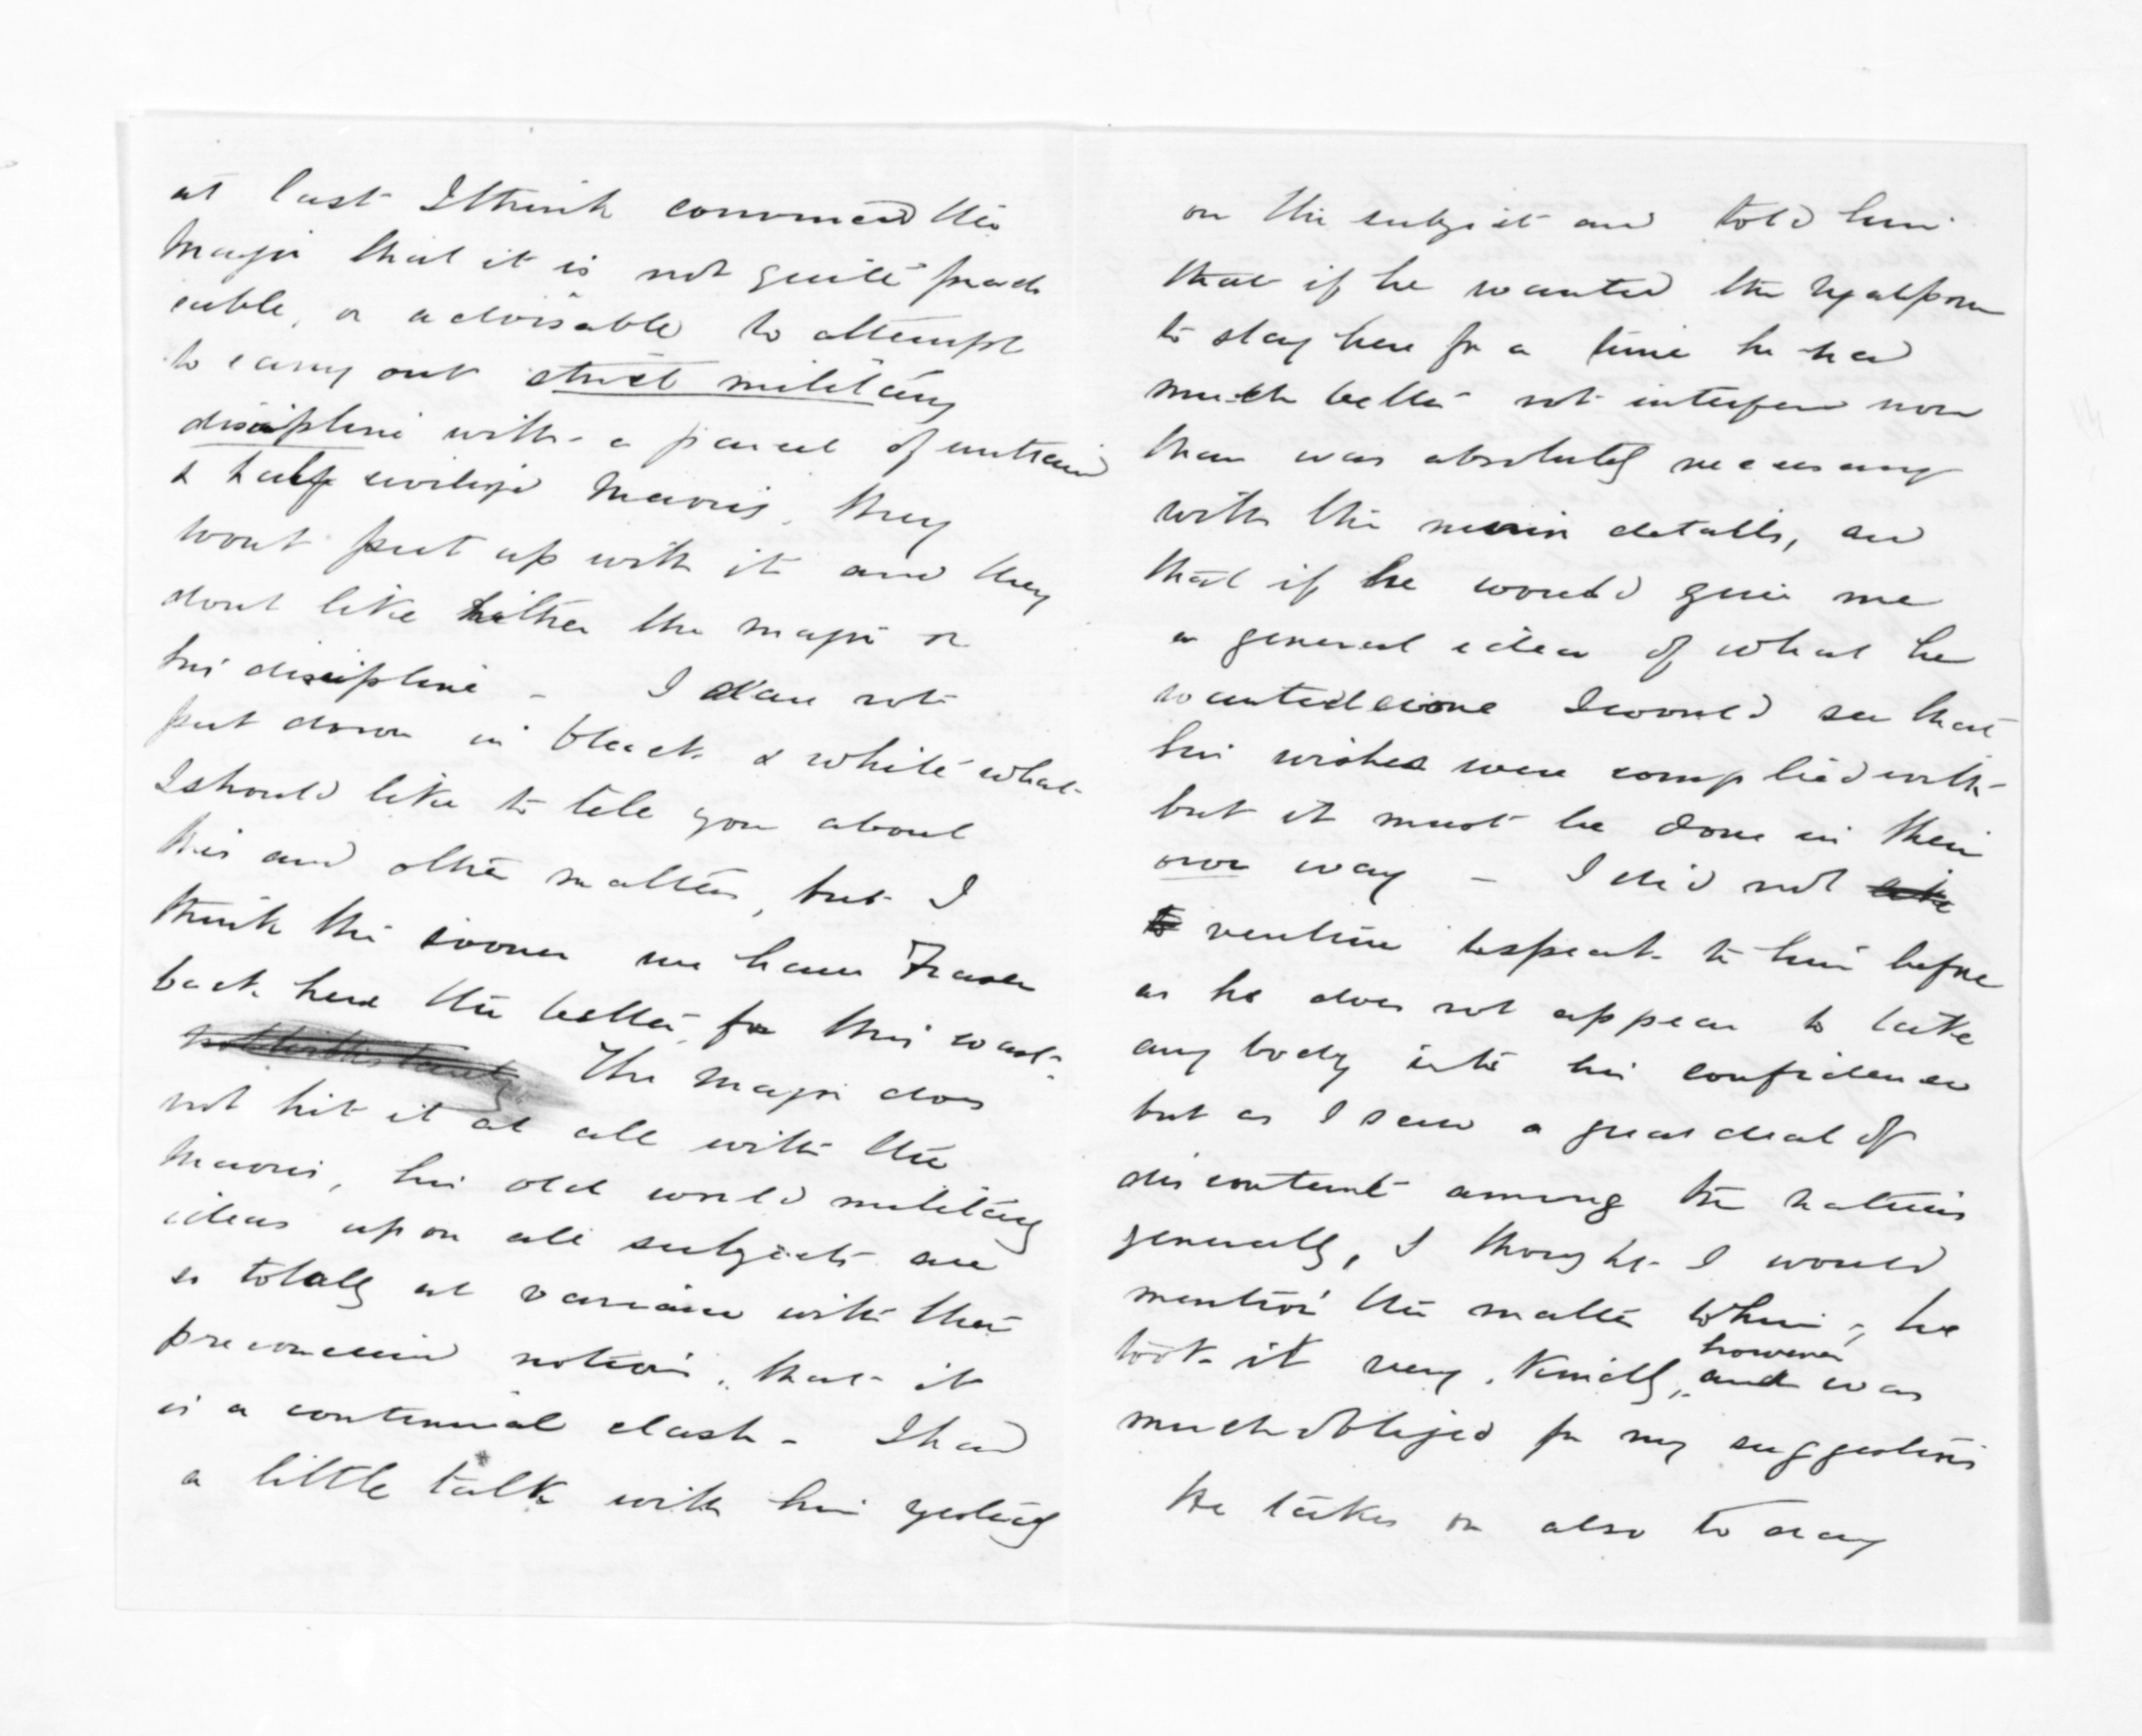 at last I think convinced the
Major that it is not quite practi
cable, or advisable to attempt
to carry out strict military
discipline with a parcel of untrained
& half civilized Maoris, they
wont put up with it and they
dont like either the major or
his discipline - I dare not
put down in black & white what
I should like to tell you about
this and other matters, but I
think the sooner we have Fraser
back here the better, for this coast
The Major does
not hit it at all with the
Maoris, his old world military
ideas upon all subjects are
so totally at variance with their
preconceived notions, that it
is a continual clash - I had
a little talk with him yesterday
on the subject and told him
that if he wanted the Ngatiporou
to stay here for a time he had
much better not interfere more
than was absolutely necessary
with the minor details, and
that if he would give me
a general idea of what he
wanted done I would see that
his wishes were complied with
but it must be done in their
own way - I did not
venture to speak to him before
as he does not appear to take
any body into his confidence
but as I saw a great deal of
discontent among the natives
generally, I thought I would
mention the matter to him, he
took it very kindly, however
and was
much obliged for my suggestions
He takes on also to day